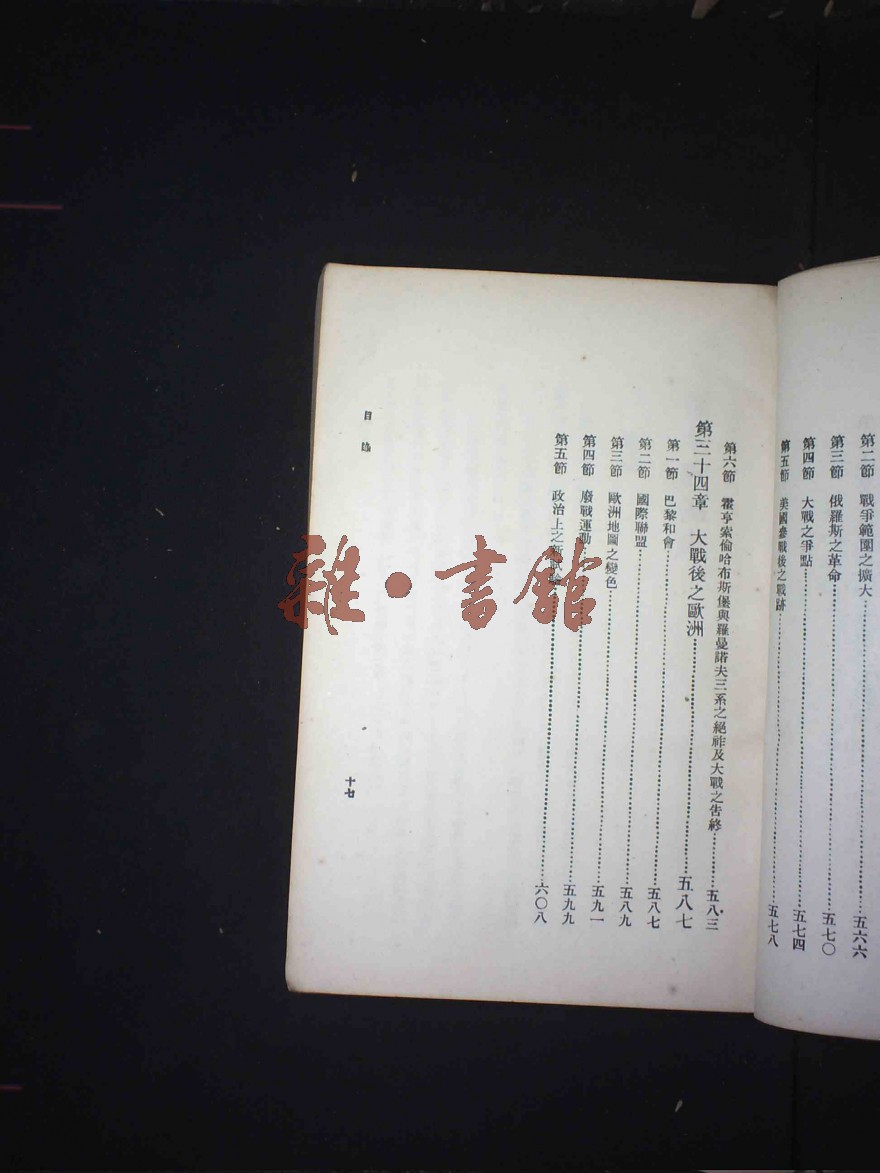 第二節　戰爭範圍之擴大……五六六
第三節　俄羅斯之革命……五七〇
第四節　大戰之爭點……五七四
第五節　美國參戰後之戰跡……五七八
第六節　霍亨索倫哈布斯堡與羅曼諾夫三系之絕祚及大戰之告終……五八三
第三十四章　大戰後之歐洲……五八七
第一節　巴黎和會……五八七
第二節　國際聯盟……五八九
第三節　歐洲地圖之變色……五九一
第四節　廢戰運動……五九九
第五節　政治上之新試驗……六〇八
目錄
十七
雜·書館